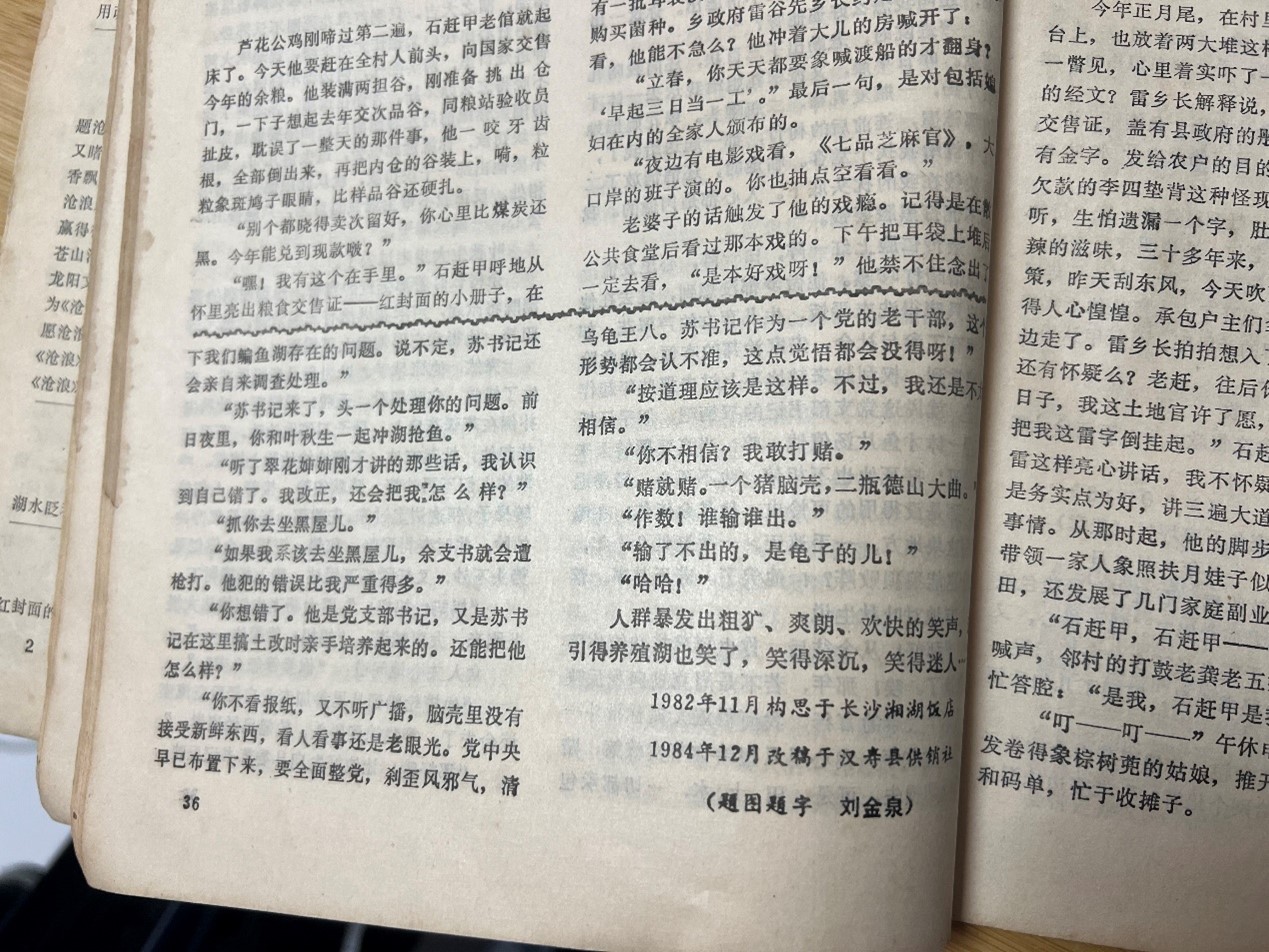 用
题沧
又睹
香飘
沧浪
赢得
苍山
龙阳
为《沧
愿沧浪
《沧浪
《沧浪
湖水眨
红封面的
2
芦花公鸡刚啼过第二遍，石赶甲老倌就起
床了。今天他要赶在全村人前头，向国家交售
今年的余粮。他装满两担谷，刚准备挑出仓
门，一下子想起去年交次品谷，同粮站验收员
扯皮，耽误了一整天的那件事，他一咬牙齿
根，全部倒出来，再把内仓的谷装上，嗬，粒
粒象斑鸠子眼睛，比样品谷还硬扎。
“别个都晓得卖次留好，你心里比煤炭还
黑。今年能兑到现款啵？”
“嘿！我有这个在手里。”石赶甲呼地从
怀里亮出粮食交售证——红封面的小册子，在
有一批耳袋
购买菌种。乡政府雷谷先乡长
看，他能不急么？他冲着大儿的房喊开了：
“立春，你天天都要象喊渡船的才翻身？
‘早起三日当一工’。”最后一句，是对包括媳
妇在内的全家人颁布的。
“夜边有电影戏看，《七品芝麻官》，大
口岸的班子演的。你也抽点空看看。”
老婆子的话触发了他的戏瘾。记得是在散
公共食堂后看过那本戏的。下午把耳袋上堆后
一定去看，“是本好戏呀！”他禁不住念出了
下我们鳊鱼湖存在的问题。说不定，苏书记还
会亲自来调查处理。”
“苏书记来了，头一个处理你的问题。前
日夜里，你和叶秋生一起冲湖抢鱼。”
“听了翠花婶婶刚才讲的那些话，我认识
到自己错了。我改正，还会把我怎么样？”
“抓你去坐黑屋儿。”
“如果我系该去坐黑屋儿，余支书就会遭
枪打。他犯的错误比我严重得多。”
“你想错了。他是党支部书记，又是苏书
记在这里搞土改时亲手培养起来的。还能把他
怎么样？”
“你不看报纸，又不听广播，脑壳里没有
接受新鲜东西，看人看事还是老眼光。党中央
早已布置下来，要全面整党，刹歪风邪气，清
乌龟王八。苏书记作为一个党的老干部，这个
形势都会认不准，这点觉悟都会没得呀！”
“按道理应该是这样。不过，我还是不
相信。”
“你不相信？我敢打赌。”
“赌就赌。一个猪脑壳，二瓶德山大曲。”
“作数！谁输谁出。”
“输了不出的，是龟子的儿！”
“哈哈！”
人群暴发出粗犷、爽朗、欢快的笑声，
引得养殖湖也笑了，笑得深沉，笑得迷人…
1982年11月构思于长沙湘湖饭店
1984年12月改稿于汉寿县供销社
（题图题字　刘金泉）
36
今年正月尾，在村里
台上，也放着两大堆这样
一瞥见，心里着实吓了一
的经文？雷乡长解释说，
交售证，盖有县政府的
有金字。发给农户的目的
欠款的李四垫背这种怪现
听，生怕遗漏一个字，肚
辣的滋味，三十多年来，
策，昨天刮东风，今天吹
得人心惶惶。承包户主们
边走了。雷乡长拍拍想入
还有怀疑么？老赵，往后
日子，我这土地官许了愿，
把我这雷字倒挂起。”石赶
雷这样亮心讲话，我不怀疑
是务实点为好，讲三遍大道
事情。从那时起，他的脚步
带领一家人象照扶月娃子似
田，还发展了几门家庭副业
“石赶甲，石赶甲——
喊声，邻村的打鼓老龚老五
忙答腔：“是我，石赶甲是
“叮——叮——”午休
发卷得象棕树蔸的姑娘，推开
和码单，忙于收摊子。